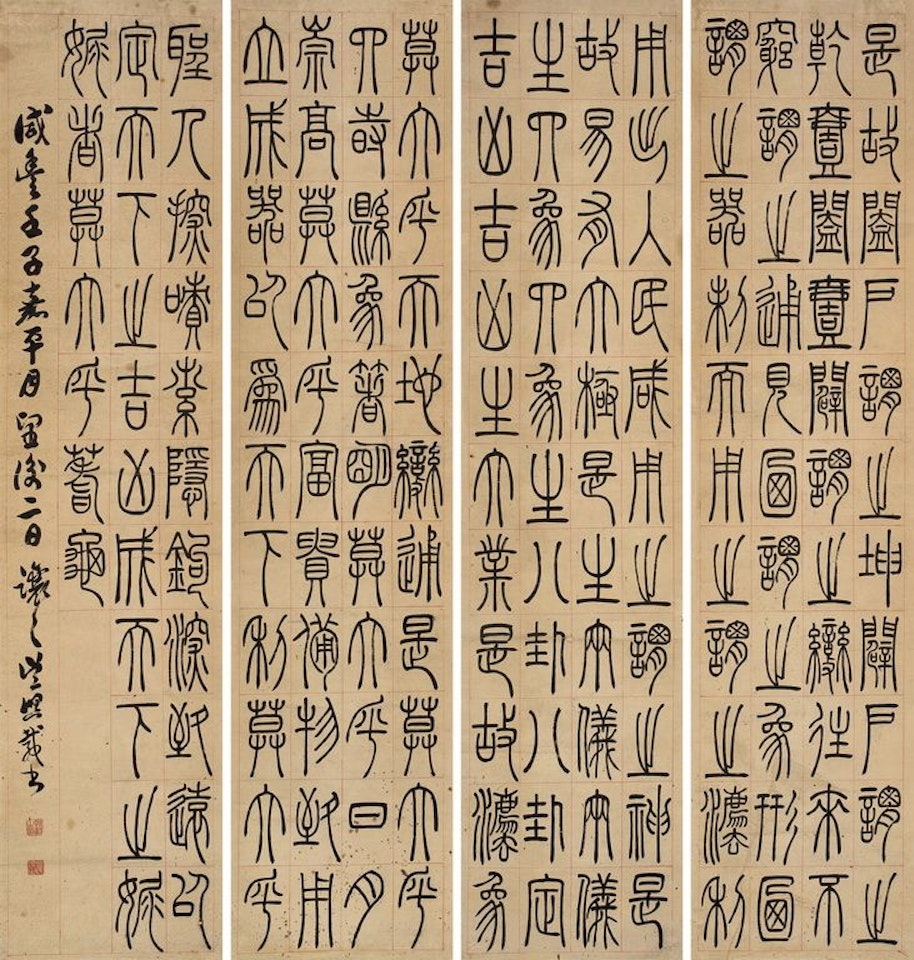 是故闔戶謂之坤闢戶謂之
乾壹闔壹闢謂之變往來不
窮謂之通見乃謂之象形乃
謂之器制而用之謂之灋利
用出入民咸用之謂之神是
故易有大極是生兩儀兩儀
生四象四象生八卦八卦定
吉凶吉凶生大業是故灋象
莫大乎天地變通是莫大乎
四時縣象著明莫大乎日月
崇高莫大乎富貴備物致用
立成器以爲天下利莫大乎
聖人探嘖索隱鉤深致遠以
定天下之吉凶成天下之娓
娓者莫大乎蓍龜
咸豐壬子嘉平月望後二日讓之吳熙載書